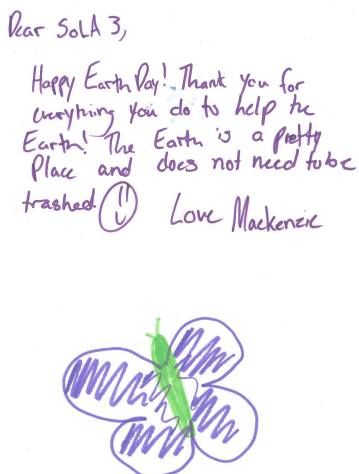 Dear SoLA 3,
Happy Earth Day! Thank you for
everything you do to help the
Earth! The Earth is a pretty
Place and does not need to be
trashed.
Love Mackenzie